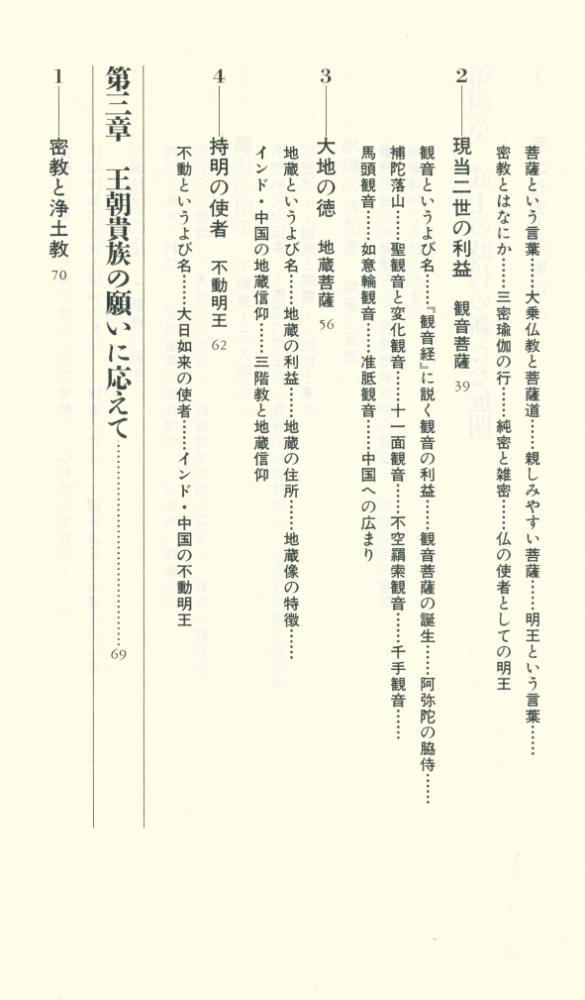 菩薩という言葉……大乗仏教と菩薩道……親しみやすい菩薩……明王という言葉……
密教とはなにか……三密瑜伽の行……純密と雑密……仏の使者としての明王
2──現当二世の利益 観音菩薩 39
観音というよび名……『観音経』に説く観音の利益……観音菩薩の誕生……阿弥陀の脇侍……
補陀落山……聖観音と変化観音……十一面観音……不空羂索観音……千手観音……
馬頭観音……如意輪観音……准胝観音……中国への広まり
3──大地の徳 地蔵菩薩 56
地蔵というよび名……地蔵の利益……地蔵の住所……地蔵像の特徴……
インド・中国の地蔵信仰……三階教と地蔵信仰
4──持明の使者 不動明王 62
不動というよび名……大日如来の使者……インド・中国の不動明王
第三章 王朝貴族の願いに応えて……………………69
1──密教と浄土教 70